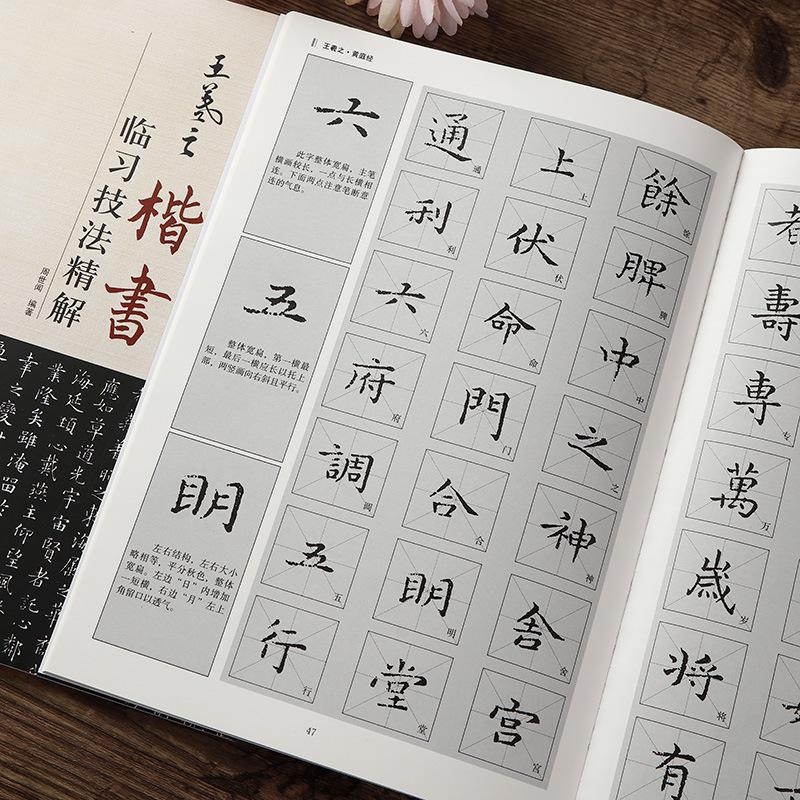 王羲之
楷書
临习技法精解
周世闻 编著
應如草道光宇宙賢者託心鄰
海延頸心戴燕主仰望風
業隆矣雖淹留
幸之變
王羲之·黄庭经
六
此字整体宽扁，主笔
横画较长，一点与长横相
连。下面两点注意笔断意
连的气息。
五
整体宽扁，第一横最
短，最后一横应长以托上
部，两竖画向右斜且平行。
明
左右结构，左右大小
略相等，平分秋色，整体
宽扁。左边“日”内增加
一短横，右边“月”左上
角留口以透气。
餘 脾 脾 中 中 之 之 神 神 舍 舍 宮 宫
上 上 伏 伏 命 命 門 门 合 合 明 明 堂 堂
通 通 利 利 六 六 府 府 調 调 五 五 行 行
47
壽 專 专 萬 万 歲 岁 將 将 有